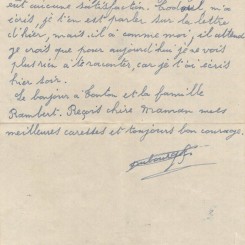 eut aucune satisfaction. m'a
écris, je t'en est parler sur la lettre
d'hier, mais il à comme moi, il attend
je crois que pour aujourd'hui je ne vois
plus rien à te raconter, car je t'ai écris
hier soir.
Le bonjour à Tonton et la famille
Rambert. Reçois chère Maman mes
meilleures caresses et toujours bon courage.